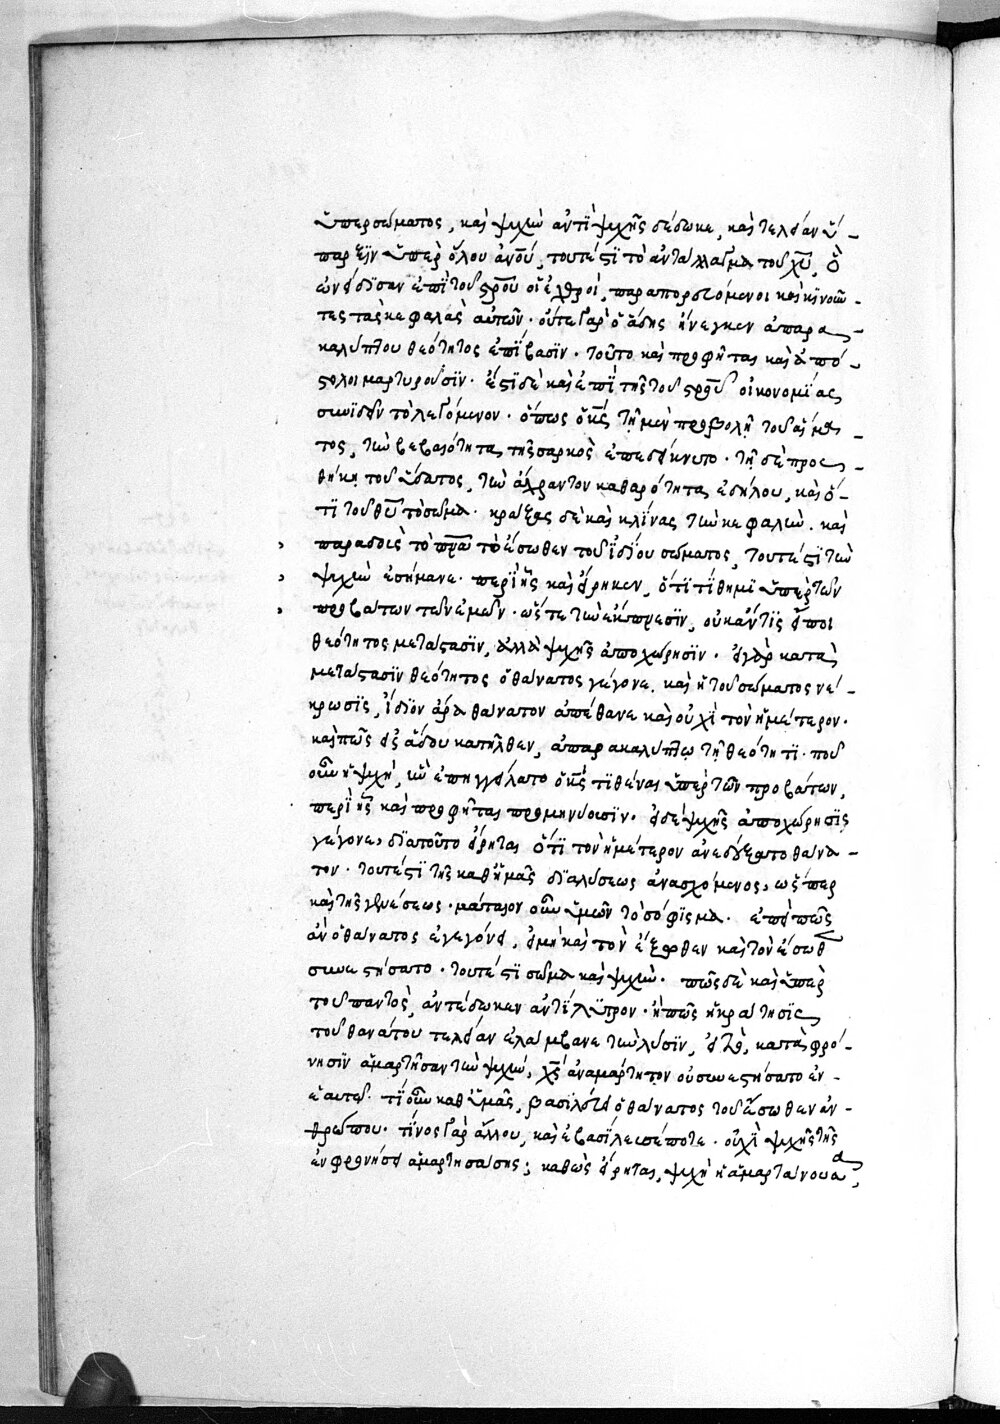 ὑπερ σώματος, καὶ ψυχὴν ἀντὶ ψυχῆς δέδωκε, καὶ τελείαν ὕ-
παρξιν ὑπὲρ ὅλου ἀνου, τουτέστι τὸ ἀντάλλαγμα τοῦ χυ, ὃ
ὠνείδισαν ἐπὶ τοῦ σρου οἱ ἐχθροὶ, παραπορευόμενοι καὶ κινοῦν-
τες τὰς κεφαλὰς αὐτῶν. οὔτε γὰρ ὁ ἅδης ἤνεγκεν ἀπαρα-
καλύπτου θεότητος ἐπίβασιν. τοῦτο καὶ προφῆται καὶ ἀπό-
στολοι μαρτυροῦσιν. ἔστι δὲ καὶ ἐπὶ τῆς τοῦ σρου οἰκονομίας
συνιδεῖν τὸ λεγόμενον. ὅπως ὁ κς τῇ μὲν προβολῇ τοῦ αἵμα-
τος, τὴν βεβαιότητα τῆς σαρκὸς ἐπεδείκνυτο. τῇ δὲ προσ-
θήκῃ τοῦ ὕδατος, τὴν ἄχραντον καθαρότητα ἐδήλου, καὶ ὅ-
τι τοῦ θυ τὸ σῶμα. κράξας δὲ καὶ κλίνας τὴν κεφαλὴν. καὶ
παραδοὺς τὸ πνα τὸ ἔσωθεν τοῦ ἰδίου σώματος, τουτέστι τὴν
ψυχὴν ἐσήμανε. περὶ ἧς καὶ εἴρηκεν, ὅτι τίθημι ὑπὲρ τῶν
προβάτων τῶν ἐμῶν. ὥστε τὴν ἐκπνευσιν, οὐκ ἄν τις εἴποι
θεότητος μετάστασιν, ἀλλὰ ψυχῆς ἀποχώρησιν. εἰ γὰρ κατὰ
μετάστασιν θεότητος ὁ θάνατος γέγονε, καὶ ἡ τοῦ σώματος νέ-
κρωσις, ἴδιον ἄρα θάνατον ἀπέθανε καὶ οὐχὶ τὸν ἡμέτερον.
καὶ πῶς ἐξ ἅδου κατῆλθεν, ἀπαρακαλύπτῳ τῇ θεότητι. ποῦ
οὖν ἡ ψυχὴ, ἣν ἐπηγγείλατο ὁ κς τιθέναι ὑπὲρ τῶν προβάτων,
περὶ ἧς καὶ προφῆται προμηνύουσιν. εἰ δὲ ψυχῆς ἀποχώρησις
γέγονε, διατοῦτο εἴρηται ὅτι τὸν ἡμέτερον ἀνεδέξατο θάνα-
τον. τουτέστι τῆς καθ ἡμᾶς διαλύσεως ἀνασχόμενος, ὥσπερ
καὶ τῆς γεννέσεως. μάταιον οὖν ὑμῶν τὸ σόφισμα. ἐπεὶ πῶς
ἂν ὁ θάνατος ἐγεγόνει, εἰ μὴ καὶ τὸν ἔξωθεν καὶ τὸν ἔσωθεν
συνεστήσατο. τουτέστι σῶμα καὶ ψυχὴν. πῶς δὲ καὶ ὑπὲρ
τοῦ παντὸς, ἀντέδωκεν ἀντίλυτρον. ἢ πῶς ἡ κράτησις
τοῦ θανάτου τελείαν ἐλάμβανε τὴν λύσιν, εἰ τὴν κατὰ φρό-
νησιν ἁμαρτήσαν τὴν ψυχὴν, χς ἀναμάρτητον οὐ συνεστήσατο ἐν
ἑαυτῷ. τί οὖν καθ ὑμᾶς, βασιλεύει ὁ θάνατος τοῦ ἔσωθεν ἀν-
θρώπου. τίνος γὰρ ἄλλου, καὶ ἐβασίλευσέ ποτε. οὐχὶ ψυχῆς τῆς
ἐν φρονήσει ἁμαρτησάσης; καθὼς εἴρηται, ψυχὴ ἡ ἁμαρτάνουσα,